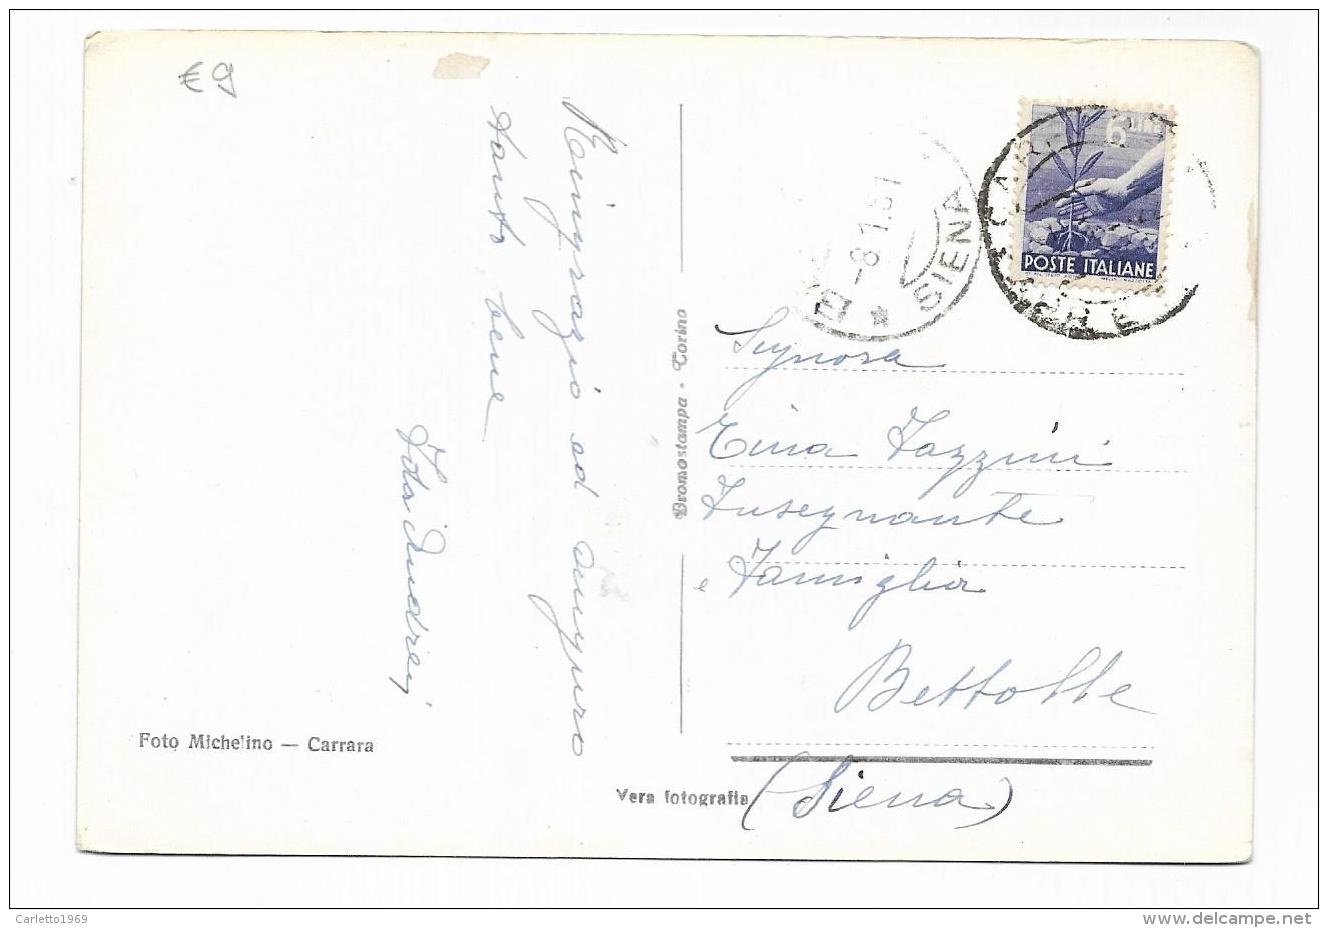 €9
Ringrazio ed auguro
tanto bene
Ida Andrei
Foto Michelino — Carrara
Bromostampa - Torino
Vera fotografia
-8.1.51
SIENA
6 LIRE
POSTE ITALIANE
Signora
Tina Fazzini
Insegnante
e Famiglia
Bettolle
(Siena)
Carletto1969
www.delcampe.net